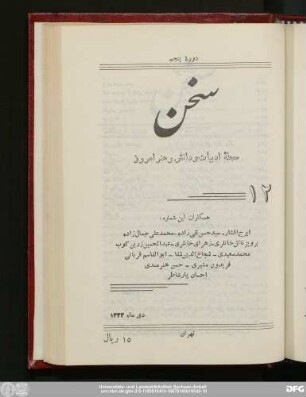 دورهٔ پنجم
سخن
مجلهٔ ادبیات و دانش و هنر امروز
۱۲
همکاران این شماره:
ایرج افشار ـ سید حسن تقی زاده ـ محمد علی جمال زاده
پرویز ناتل خانلری ـ زهرای خانلری ـ عبدالحسین زرین کوب
محمد معیدی ـ شجاع الدین شفا ـ ابوالقاسم قربانی
فریدون مشیری ـ حسن هنرمندی
احسان یارشاطر
دی ماه ۱۳۳۳
تهران
۱۵ ریال
Universitäts- und Landesbibliothek Sachsen-Anhalt